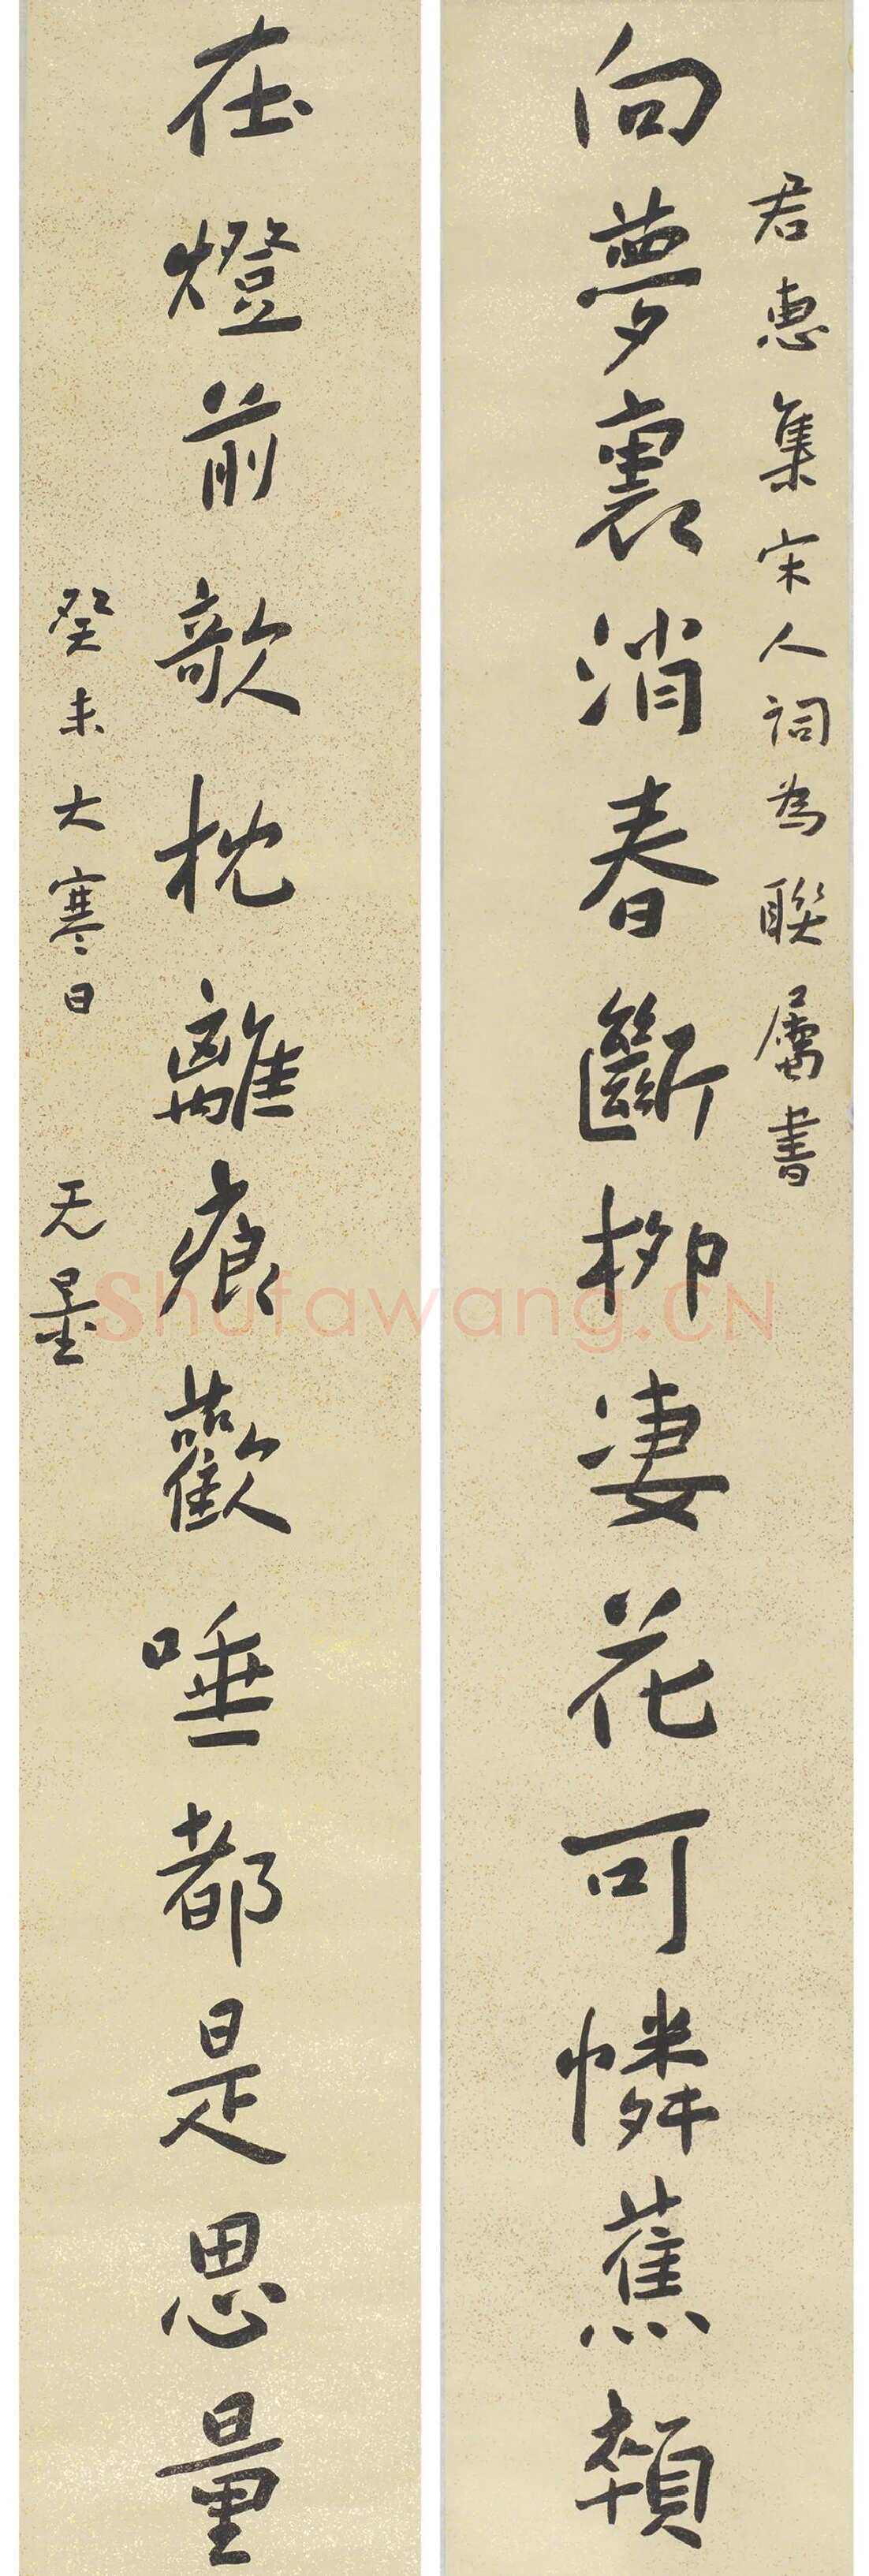 君惠集宋人詞為聯屬書
向夢裏消春斷柳凄花可憐蕉頹
在燈前欹枕離痕歡唾都是思量
癸未大寒日 无量
Shufawang.CN